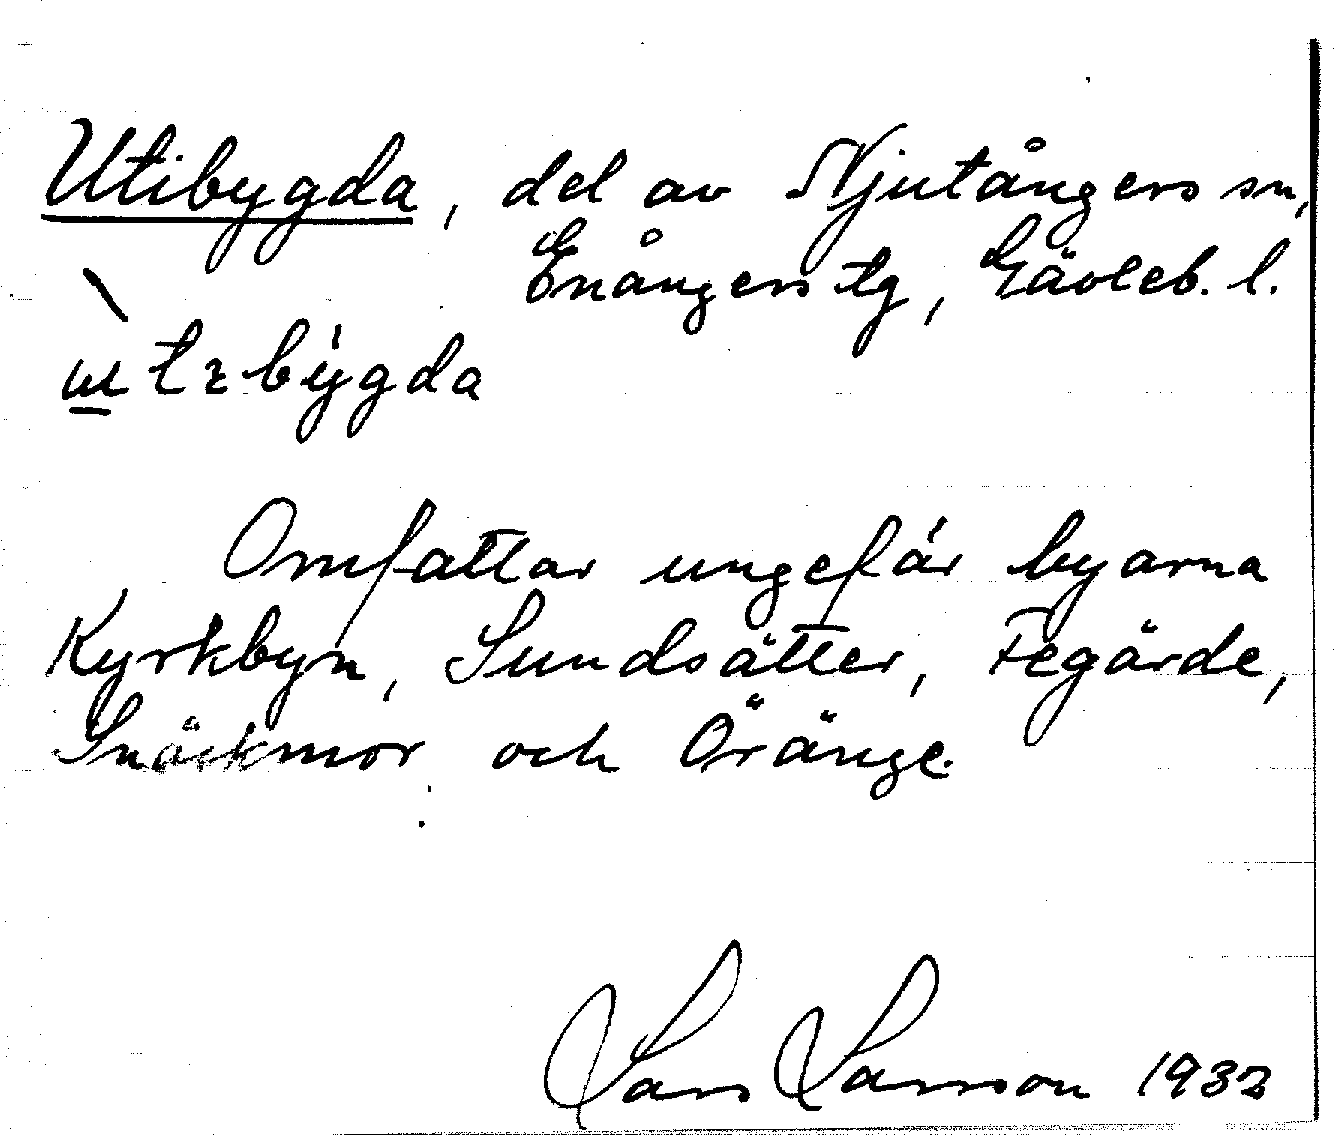 Utibygda, del av Njutångers sn,
Enångers tg, Gävleb. l.
ɯ̲̀tɩbýgda
Omfattar ungefär byarna
Kyrkbyn, Sundsätter, Fegärde,
Snäckmor och Öränge.
Lars Larsson 1932